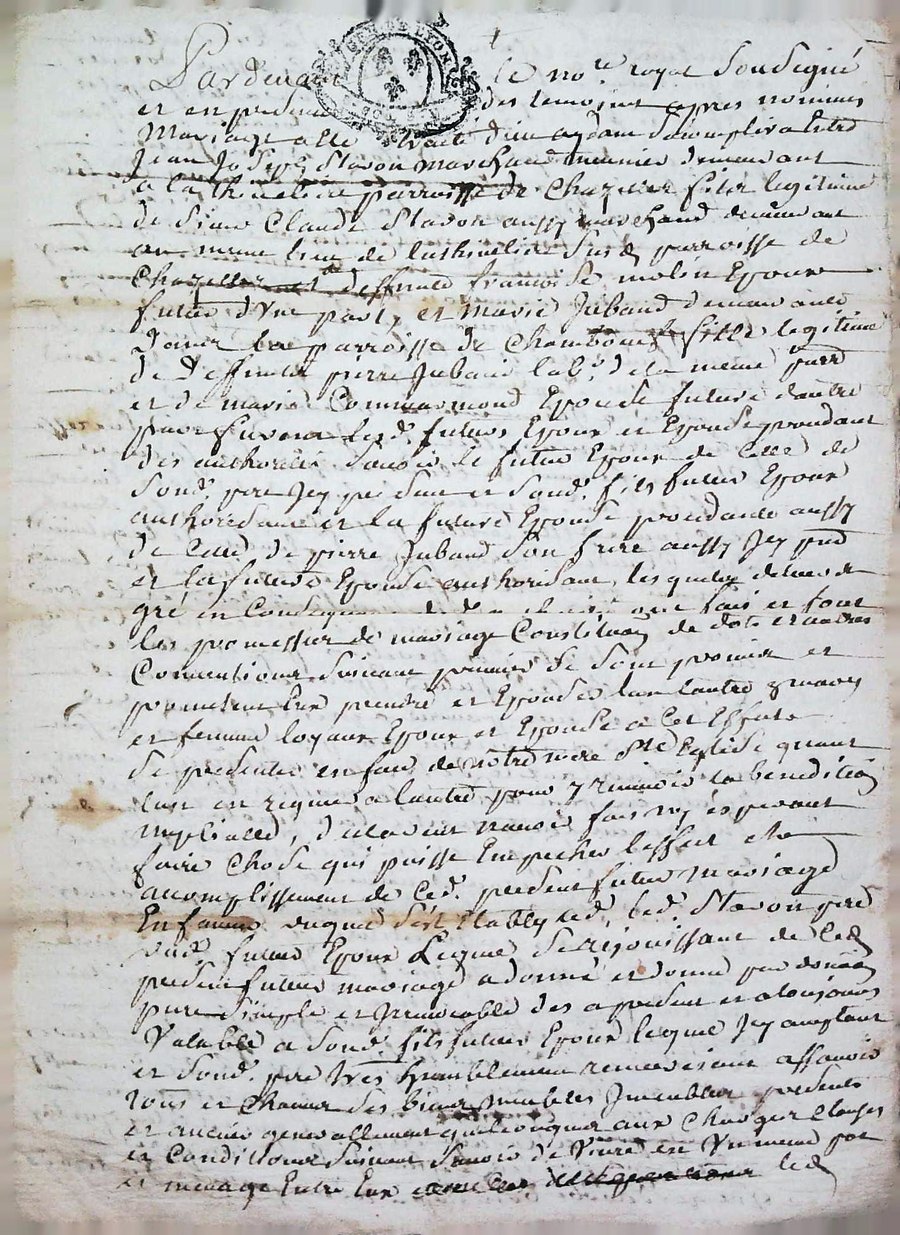 GEN DE LYON
Pardevant le no.re royal soussigné
et en presence des temoins apres nommes
Mariage a esté traité Dieu aydant s'acomplira Entre
Jean Joseph Stavon marchand meunier demeurant
a la thineliere parroisse de Chazelles fils legitime
de sieur Claude Stavon aussy marchand demeurant
au meme lieu de lathineliere susd. parroisse de
Chazelles et deffunte francoise molin Epoux
futur d'Une part, et Marie Jubaud demeurante
dans la parroisse de Chambœuf fille legitime
de deffunt pierre Jubaud lab.r de la meme parr.
et de marie Commarmond Epouse future dautre
part furent lesd. futurs Epoux et Epouse procedant
des authorites savoir le futur Epoux de Celle de
sond. pere Icy present et sond. fils futur Epoux
authorisant et la future Epouse procedante aussy
de Celle de pierre Jubaud son frere aussy Icy pnt
et la future Epouse authorisant, lesquelles de leur
gré en Consequence ont fais et font
les promesses de mariage Constitution de dots et autres
Conventions suivant premier se sont promis et
promettent Eux prendre et Epouser lun lautre p. mary
et femme loyaux Epoux et Epouse a Cet Effet
se presenter en face de notre mere Ste Eglise quant
lun en requis a lautre pour y recevoir la benediction
nuptialle, declarent navoir fais ny esperant
faire Chose qui puisse Empecher leffect et
acomplissement de Ced. present futur mariage
En faveur duquel s'est Etably led. Stavon pere
dud. futur Epoux Lequel se rejouissant de Ced.
present futur mariage a donné et donne par donation
pure simple et Irrevocable des a present et a toujours
Valable a sond. fils futur Epoux lequel Icy acceptant
et sond. pere tres humblement remerciant assavoir
tous et Chacun ses biens meubles Immeubles presents
et avenir generallement quelconques aux Charges Clauses
et Conditions suivant savoir de Vivre en Un meme pot
et menage Entre Eux led.